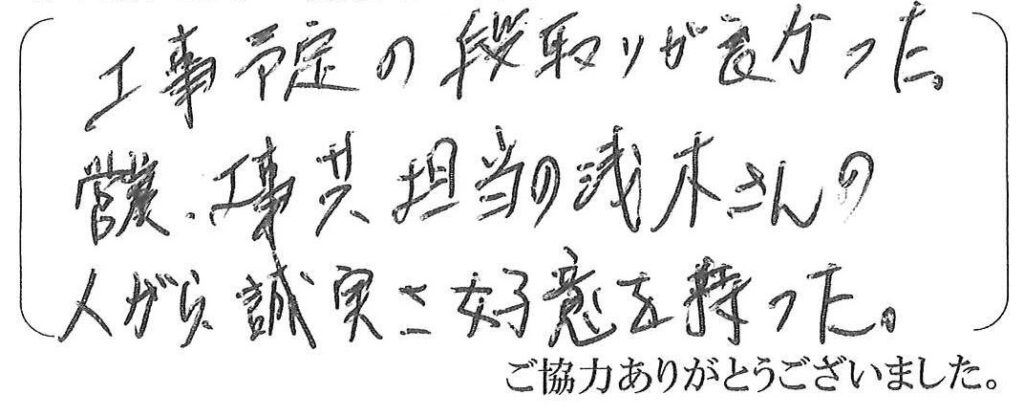 工事予定の段取りが良かった。
営業、工事共、担当の浅木さんの
人がら、誠実さに好意を持った。
ご協力ありがとうございました。